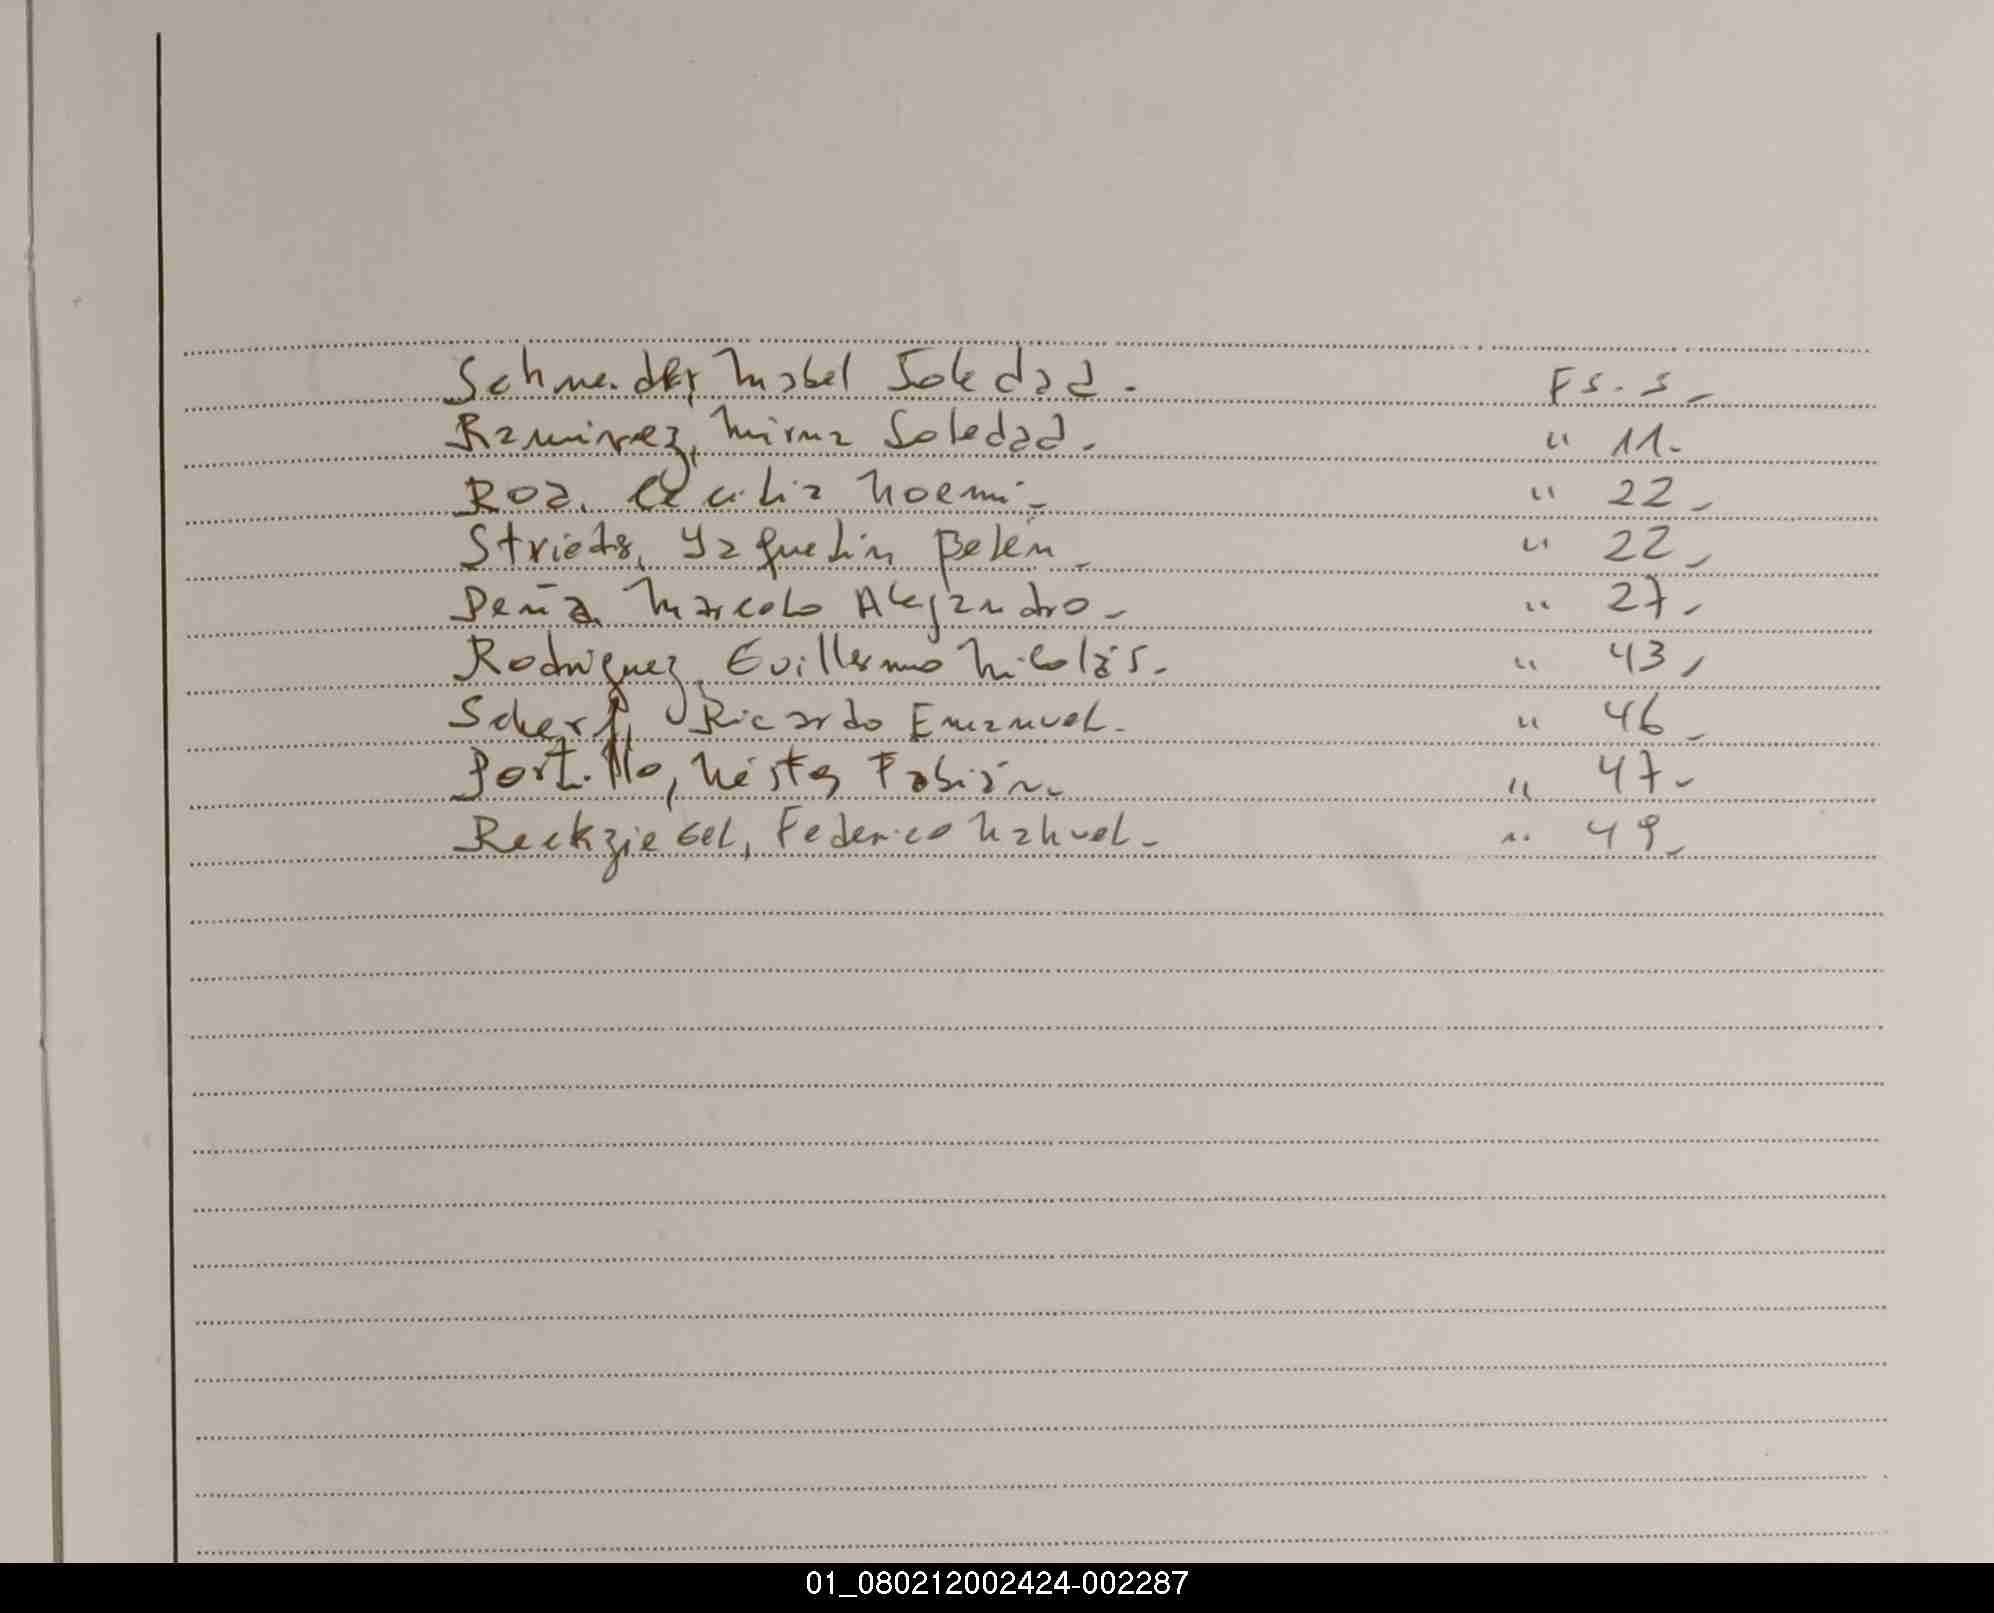 Schneider, Mabel Soledad. Fs. 5_
Ramirez, Mirna Soledad. " 11.
Roa, Cecilia Noemi_ " 22_
Yaquelin Belén_ " 22_
Peña Marcelo Alejandro_ " 27_
Rodriguez, Guillermo Nicolás. " 43_
Scherf, Ricardo Emanuel. " 46_
Portillo, Néstor Fabián. " 47_
Reckziegel, Federico Nahuel_ " 49_
01_080212002424-002287